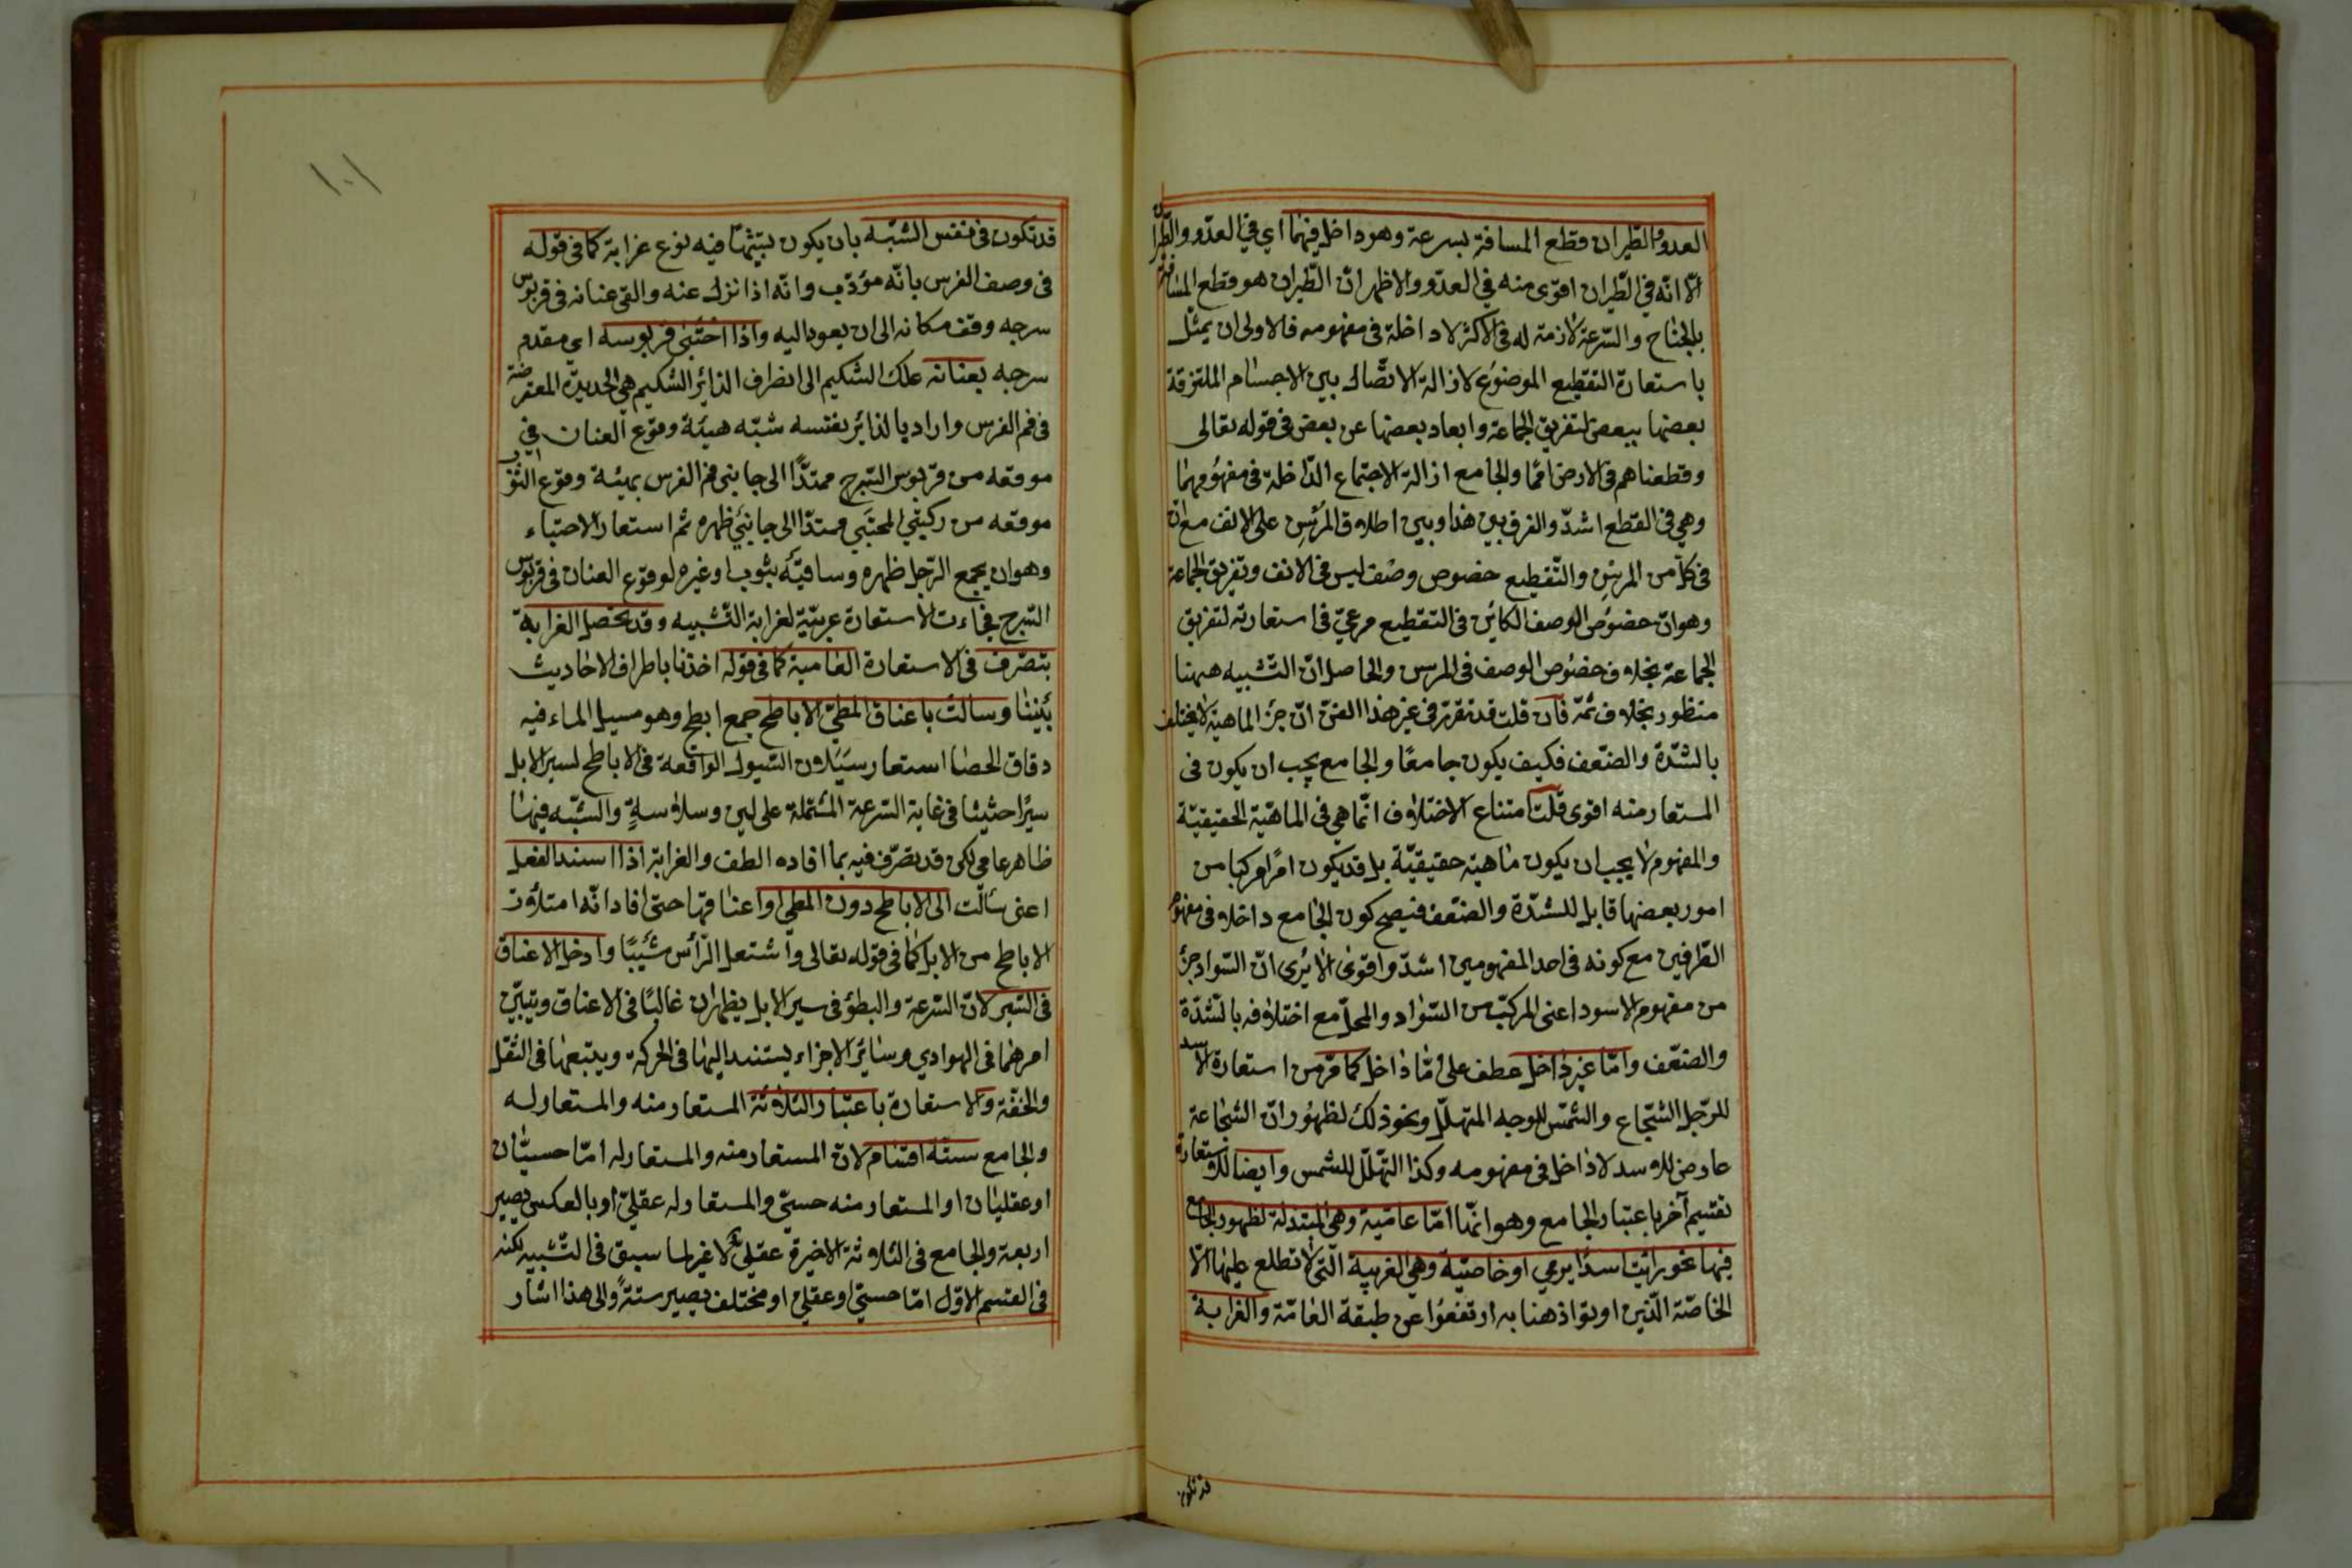 العدو والطيران قطع المسافة بسرعة وهو داخل فيهما اي في العدو والطيران
الّا انّه في الطّيران اقوى منه في العدو والاظهر انّ الطّيران هو قطع المسافة
بالجناح والسّرعة لازمة له في الاكثر لا داخلة في مفهومه فالاولى ان يمثّل
باستعارة التقطيع الموضوع لازالة الاتّصال بين الاجسام الملتزقة
بعضها ببعض لتفريق الجماعة وابعاد بعضها عن بعض في قوله تعالى
وقطعناهم في الارض امما والجامع ازالة الاجتماع الدّاخلة في مفهومهما
وهي في القطع اشدّ والفرق بين هذا وبين اطلاق المرسن على الانف مع انّ
في كلّ من المرسن والتّقطيع خصوص وصف ليس في الانف وتفريق الجماعة
وهو انّ خصوص الوصف الكائن في التقطيع مرعيّ في استعارته لتفريق
الجماعة بخلاف خصوص الوصف في المرسن والحاصل انّ التّشبيه ههنا
منظور بخلاف ثمّة فان قلت قد تقرّر في غير هذا الفنّ انّ جزء الماهيّة لا يختلف
بالشّدّة والضّعف فكيف يكون جامعًا والجامع يجب ان يكون في
المستعار منه اقوى قلت امتناع الاختلاف انّما هي في الماهيّة الحقيقيّة
والمفهوم لا يجب ان يكون ماهية حقيقيّة بل قد يكون امرًا مركبا من
امور بعضها قابل للشدّة والضّعف فيصح كون الجامع داخلا في مفهوم
الطّرفين مع كونه في احد المفهومين اشدّ واقوى الا يُرى انّ السّواد جزء
من مفهوم الاسود اعني المركبّ من السّواد والمحلّ مع اختلافه بالشّدّة
والضّعف وامّا غير داخل عطف على امّا داخل كما مرّ من استعارة الاسد
للرّجل الشّجاع والشّمس للوجه المتهلّل ونحو ذلك لظهور انّ الشجاعة
عارض للاسد لا داخل في مفهومه وكذا التّهلّل للشمس وايضا للاستعارة
تقسيم آخر باعتبار الجامع وهو انّها امّا عاميّة وهي المبتذلة لظهور الجامع
فيها نحو رايت اسدًا يرمي او خاصيّة وهي الغريبة الّتي لا تطلع عليها الّا
الخاصّة الّذين اوتوا ذهنا به ارتفعوا عن طبقة العامّة والغرابة
قد تكون
١٠١
قد تكون في نفس الشّبه بان يكون تشبيهًا فيه نوع غرابة كما في قوله
في وصف الفرس بانّه مؤدّب وانّه اذا نزل عنه والقى عنانه في قربوس
سرجه وقف مكانه الى ان يعود اليه واذا احتبى قربوسه اي مقدم
سرجه بعنانه علك الشكيم الى انصراف الزائر الشكيم هي الحديدة المعترضة
في فم الفرس واراد بالزائر نفسه شبّه هيئة وقوع العنان في
موقعه من قربوس السّرج ممتدًّا الى جانبي فم الفرس بهيئة وقوع الثوب
موقعه من ركبتي المحتبي ممتدّا الى جانبي ظهره ثم استعار الاحتباء
وهو ان يجمع الرّجل ظهره وساقيه بثوب او غيره لوقوع العنان في قربوس
السّرج فجاءت الاستعارة غريبة لغرابة التّشبيه وقد تحصل الغرابة
بتصرّف في الاستعارة العامية كما في قوله اخذنا باطراف الاحاديث
بيننا وسالت باعناق المطيّ الاباطح جمع ابطح وهو مسيل الماء فيه
دقاق الحصا استعار سيلان السّيول الواقعة في الاباطح لسير الابل
سيرًا حثيثا في غاية السّرعة المشتملة على لين وسلاسةٍ والشّبه فيها
ظاهر عامي لكن قد تصرّف فيه بما افاده الطف والغرابة اذا اسند الفعل
اعنى سالت الى الاباطح دون المطي او اعناقها حتى افاد انّه امتلأت
الاباطح من الابل كما في قوله تعالى واشتعل الرّأس شيبًا وادخل الاعناق
في السّير لانّ السّرعة والبطؤ في سير الابل يظهران غالبًا في الاعناق ويتبيّن
امرهما في الهوادي وسائر الاجزاء يستند اليها في الحركة ويتبعها في الثقل
والخفّة والاستعارة باعتبار الثلاثة المستعار منه والمستعار له
والجامع ستّة اقسام لانّ المستعار منه والمستعار له امّا حسيّان
او عقليان او المستعار منه حسيّ والمستعار له عقليّ او بالعكس يصير
اربعة والجامع في الثلاثة الاخيرة عقليّ لا غير لما سبق في التّشبيه لكنه
في القسم الاوّل امّا حسيّ او عقليّ او مختلف يصير ستةً والى هذا اشار